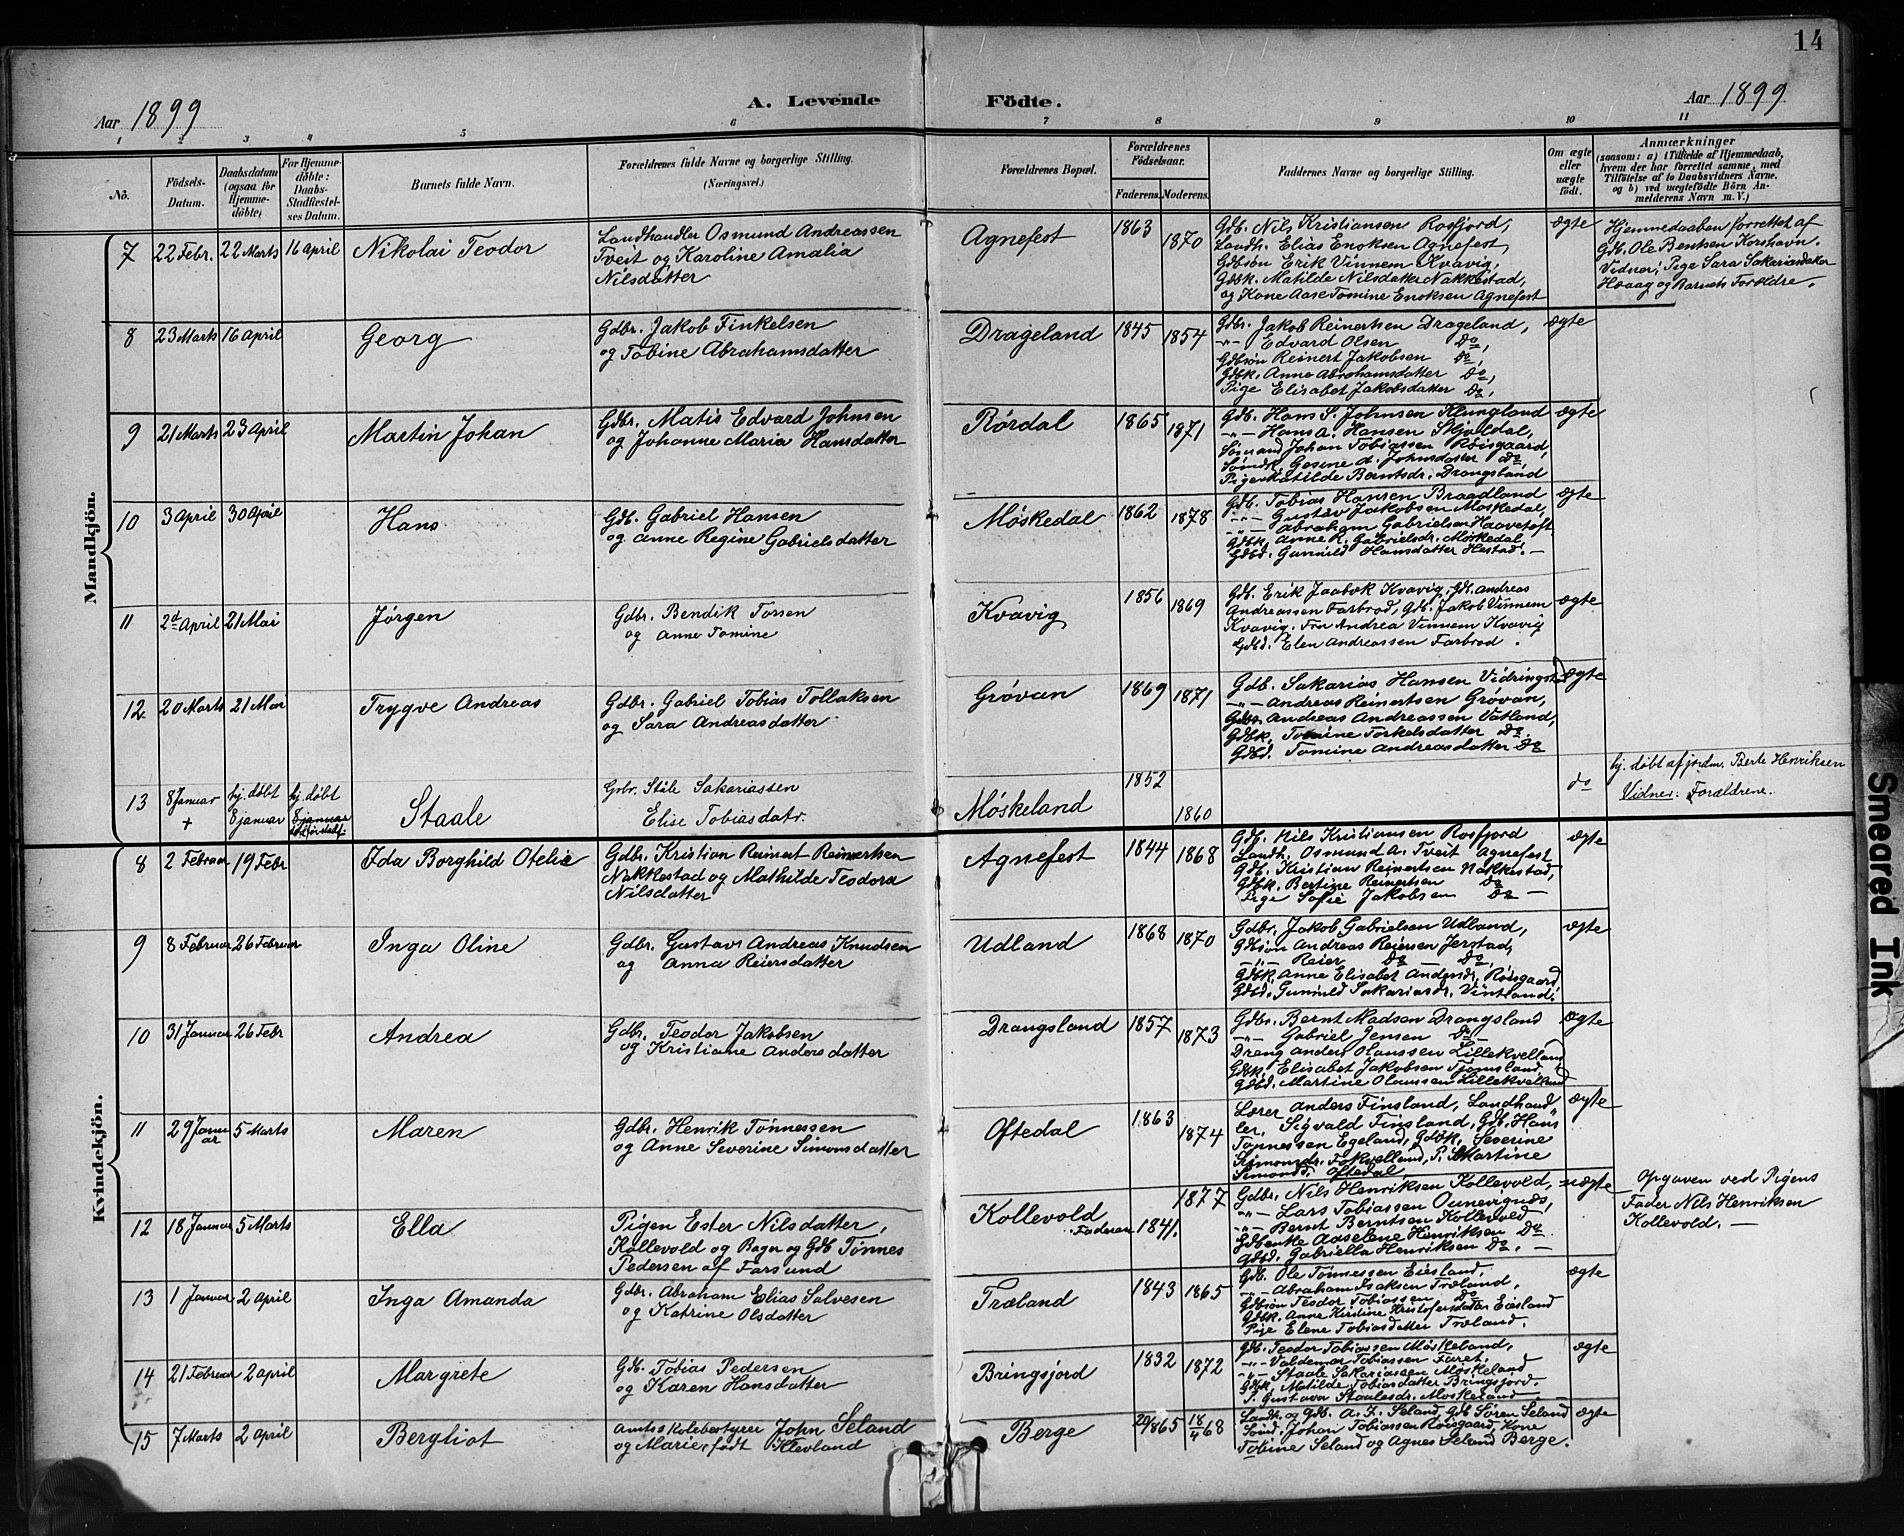 14
Aar 1899
A. Levende
Födte.
Aar 1899
1 2 3 4 5 6 7 8 9 10 11
No.
Födsels-
Datum.
Daabsdatum
(ogsaa for
Hjemme-
døbte)
For Hjemme-
døbte:
Daabs-
Stadfæstel-
ses Datum.
Barnets fulde Navn.
Forældrenes fulde Navne og borgerlige Stilling.
(Næringsvei.)
Forældrenes Bopæl.
Forældrenes
Födselsaar.
Faderens. Moderens.
Faddernes Navne og borgerlige Stilling.
Om ægte
eller
uægte
födt.
Anmærkninger
(saasom: a) i Tilfælde af Hjemmedaab,
hvem der har forrettet samme, med
Tilføielse af to Daabsvidners Navne.
og b) ved uægtefödte Börn An-
melderens Navn m. V.)
Mandkjön.
7 22 Febr. 22 Marts 16 April Nikolai Teodor
Landhandler Osmund Andreassen
Tveit og Karoline Amalia
Nilsdatter
Agnefest 1863 1870
Gdb. Nils Kristiansen Rosfjord,
Landh. Elias Enoksen Agnefest,
Gdbsøn Erik Vinnem Kvavig,
Gdbk. Matilde Nilsdatter Nakkestad,
og Kone Aase Tomine Enoksen Agnefest
ægte
Hjemmedaaben forrettet af
Gdb. Ole Bentsen Korshavn.
Vidner: Pige Sara Sakariasdatter
Haaag og Barnets Forældre.
8 23 Marts 16 April Georg
Gdbr. Jakob Finkelsen
og Tobine Abrahamsdatter
Drageland 1845 1854
Gdbr. Jakob Reinertsen Drageland,
-"- Edvard Olsen Do,
Gdbsøn Reinert Jakobsen Do,
Gdbk. Anne Abrahamsdatter Do,
Pige Elisabet Jakobsdatter Do,
ægte
9 21 Marts 23 April Martin Johan
Gdbr. Matis Edvard Johnsen
og Johanne Maria Hansdatter
Rørdal 1865 1871
Gdb. Hans S. Johnsen Klungland
-"- Hans A. Hansen Skjoldal,
Sømand Johan Tobiassen Røisgaard,
Sømdk. Gesine A. Johnsdatter do,
Pige Matilde Berntsdr. Drangsland
ægte
10 3 April 30 April Hans
Gdb. Gabriel Hansen
og Anne Regine Gabrielsdatter
Møskedal 1862 1878
Gdb. Tobias Hansen Braadland
-"- Gustav Jakobsen Møskedal,
-"- Abraham Gabrielsen Haavetoft
Gdbk. Anne R. Gabrielsdr. Møskedal,
Gdbd. Gunnild Hansdatter Hestad. —
ægte
11 2d April 21 Mai Jørgen
Gdbr. Bendik Torsen
og Anne Tomine
Kvavig 1856 1869
Gdb. Erik Jaabæk Kvavig, Gdb. Andreas
Andreassen Farbrod, Gdb. Jakob Vinnem
Kvavig. Fru Andrea Vinnem Kvavig
Gdbd. Elen Andreassen Farbrod.
ægte
12 20 Marts 21 Mai Trygve Andreas
Gdbr. Gabriel Tobias Tollaksen
og Sara Andreasdatter
Grøvan 1869 1871
Gdb. Sakarias Hansen Vidringst
-"- Andreas Reinertsen Grøvan,
Gdbs. Andreas Andreassen Vatland,
Gdbk. Tomine Torkelsdatter Do.
Gdbd. Tomine Andreasdatter Do
ægte
13 8 Januar + hj. døbt 8 januar hj. døbt 8 januar
Staale
Grbr. Ståle Sakariassen
Elise Tobiasdatr.
Møskeland 1852 1860
do
hj. døbt af jordm. Berte Henriksen
Vidner: Forældrene.
Kvindekjön.
8 2 Februar 19 Febr Ida Borghild Otelie
Gdbr. Kristian Reinert Reinertsen
Nakkestad og Mathilde Teodora
Nilsdatter
Agnefest 1844 1868
Gdb. Nils Kristiansen Rosfjord
Landh. Osmund A. Tveit Agnefest
Gdb. Kristian Reinertsen Nakkestad,
Gdbk. Bertine Reinertsen Do
Pige Sofie Jakobsen Do —
ægte
9 8 Februar 26 Februar Inga Oline
Gdbr. Gustav Andreas Knudsen
og Anna Reiersdatter
Udland 1868 1870
Gdbr. Jakob Gabrielsen Udland,
Gdbsøn Andreas Reiersen Jerstad,
-"- Reier Do Do,
Gdbk. Anne Elisabet Andersdr. Røisgaard,
Gdbd. Gunnild Sakariasdr. Vintland.
ægte
10 31 Januar 26 Febr Andrea
Gdbr. Teodor Jakobsen
og Kristiane Andersdatter
Drangsland 1857 1873
Gdbr. Bernt Madsen Drangsland
-"- Gabriel Jensen Do —
Dreng Anders Olaussen Lillekvelland
Gdbk. Elisabet Jakobsen Tjomsland,
Gdbd. Martine Olaussen Lillekvelland
ægte
11 29 Januar 5 Marts Maren
Gdbr. Henrik Tønnessen
og Anne Severine Simonsdatter
Oftedal 1863 1874
Lærer Anders Finsland, Landhand
ler Sigvald Finsland, Gdb. Hans
Tønnessen Egeland, Gdbk. Severine
Simonsdr. Fokvelland, P. Martine
Simonsd. Oftedal
ægte
12 18 Januar 5 Marts Ella
Pigen Ester Nilsdatter,
Kollevold og Bager og Gdb Tønnes
Pedersen af Farsund
Kollevold
Faderen 1841. 1877
Gdbr. Nils Henriksen Kollevold,
-"- Lars Tobiassen Ounevignæs,
-"- Bernt Berntsen Kollevold
Gdbenke Aaselene Henriksen Do
Gdbd. Gabriella Henriksen Do. —
uægte
Opgaven ved Pigens
Fader Nils Henriksen
Kollevold. —
13 1 Januar 2 April Inga Amanda
Gdbr. Abraham Elias Salvesen
og Katrine Olsdatter
Træland 1843 1865
Gdb. Ole Tønnessen Eiesland,
-"- Abraham Isaksen Træland,
Gdbsøn Teodor Tobiassen Do
Gdbk. Anne Kirstine Kristofersdatter Eiesland
Pige Elene Tobiasdatter Træland.
ægte
14 21 Februar 2 April Margrete
Gdb. Tobias Pedersen
og Karen Hansdatter
Bringsjord 1832 1872
Gdb. Teodor Tobiassen Møskeland,
-"- Valdemar Tobiassen Faret,
-"- Staale Sakariassen Møskeland
Gdbk. Matilde Tobiasdatter Bringsjord
P. Gustava Staalesdr. Møskeland
ægte
15 7 Marts 2 April Bergliot
Amtsskolebestyrer John Seland
og Marie, født Klevland
Berge 20/8 65 18/4 68
Landh. og Gdb. A. F. Seland, Gdb Søren Seland
Sømd. Johan Tobiassen Røisgaard, Kone
Tobine Seland og Agnes Seland Berge.
ægte
Smeared Ink